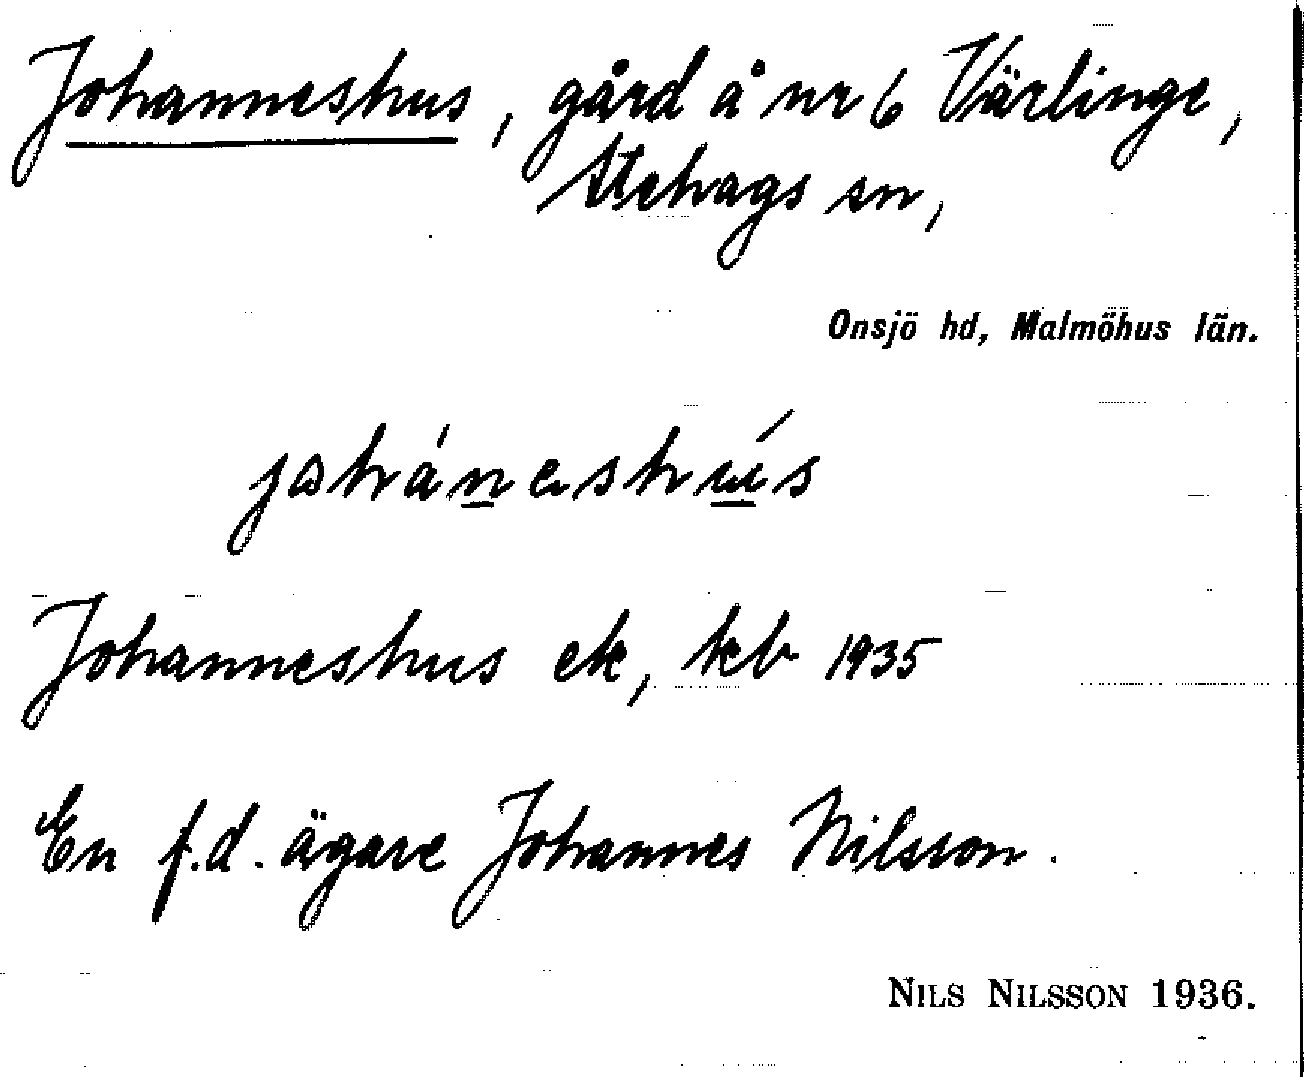 Johanneshus, gård å nr 6 Värlinge,
Stehags sn,
Onsjö hd, Malmöhus län.
joháneshu̲ ́s
Johanneshus ek, kb 1935
En f.d. ägare Johannes Nilsson.
NILS NILSSON 1936.